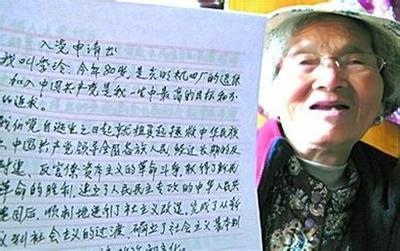 入党申请书
我叫李冷,今年80岁,是老的机四厂的退休
加入中国共产党是我一生中最高的目标和不
的追求。
我们党自诞生之日起就担负起振兴中华民族
中国共产党领导全国各族人民经过长期的反
封建、反官僚资本主义的革命斗争,取得了新民
革命的胜利,建立了人民民主专政的中华人民共
建国后,顺利地进行了社主义改造,完成了从新
义到社会主义的过渡,确立了社会主义基本制